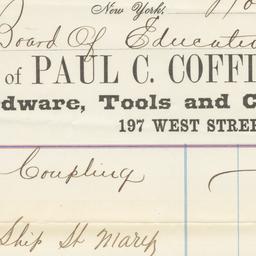 New York,
Board Of Educatio
of PAUL C. COFFI
dware, Tools and C
197 WEST STREE
Coupling
Ship St Marys